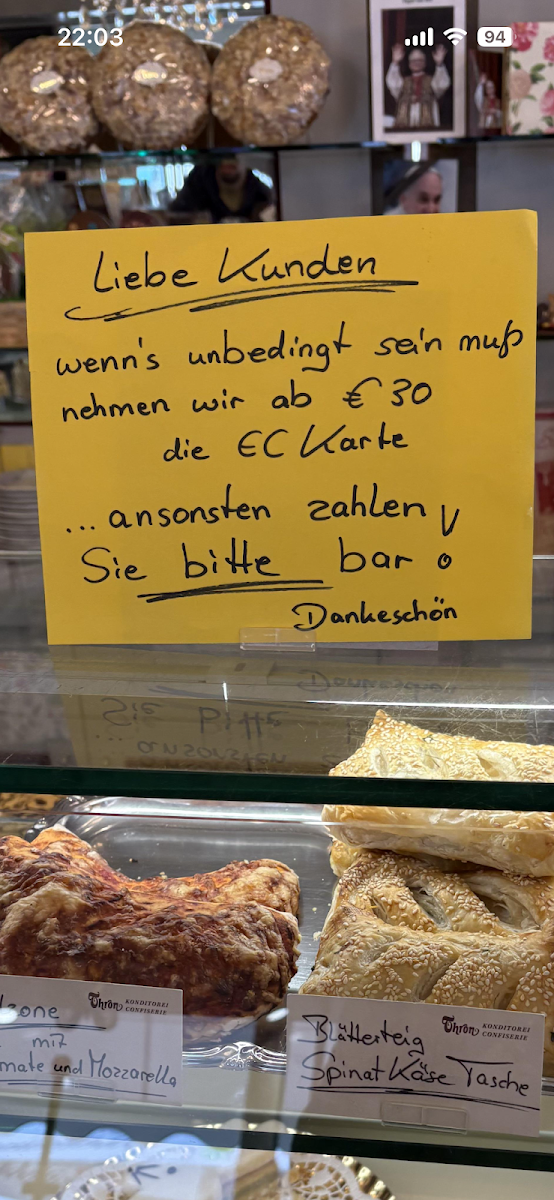 22:03
94
Liebe Kunden
wenn's unbedingt sein muß
nehmen wir ab € 30
die EC Karte
...ansonsten zahlen
Sie bitte bar!
Dankeschön
Thron KONDITOREI
CONFISERIE
mit
mate und Mozzarella
Thron KONDITOREI
CONFISERIE
Blätterteig
Spinat Käse Tasche